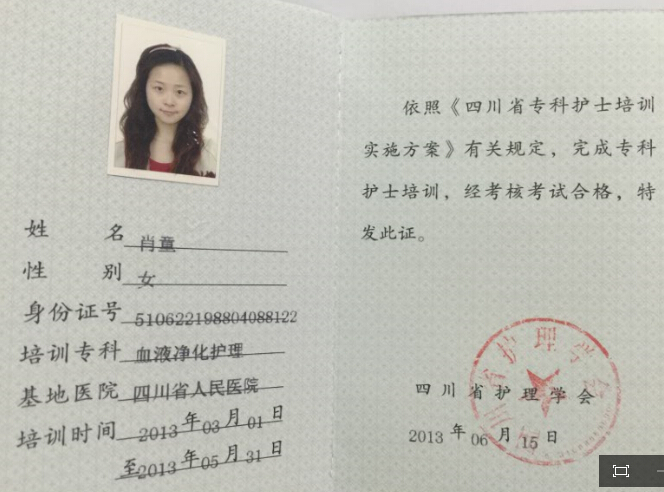 姓名 肖童
性别 女
身份证号 510622198804088122
培训专科 血液净化护理
基地医院 四川省人民医院
培训时间 2013年03月01日
至2013年05月31日
依照《四川省专科护士培训
实施方案》有关规定，完成专科
护士培训，经考核考试合格，特
发此证。
四川省护理学会
2013年06月15日
四川省护理学会